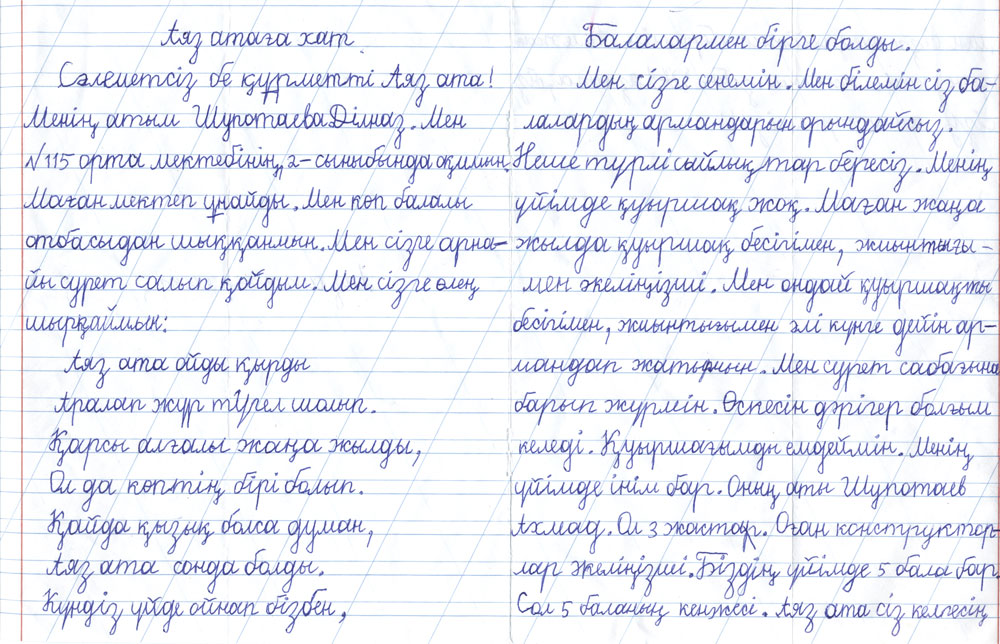 Аяз атаға хат.
Сәлеметсіз бе құрметті Аяз ата!
Менің атым Шупотаева Ділназ. Мен
№115 орта мектебінің 2-сыныбында оқимын.
Маған мектеп ұнайды. Мен көп балалы
отбасыдан шыққанмын. Мен сізге арна-
йы сурет салып қойдым. Мен сізге өлең
шырқаймын:
Аяз ата ойды қырды
Аралап жүр түгел шолып.
Қарсы алғалы жаңа жылды,
Ол да көптің бірі болып.
Қайда қызық болса думан,
Аяз ата сонда болды.
Күндіз үйде ойнап бізбен,
Балалармен бірге болды.
Мен сізге сенемін. Мен білемін сіз ба-
лалардың армандарын орындайсыз.
Неше түрлі сайлық тар бересіз. Менің
үйімде қуыршақ жоқ. Маған жаңа
жылда қуыршақ бесігімен, жиынтығы-
мен әкеліңізші. Мен ондай қуыршақты
бесігімен, жиынтығымен әлі күнге дейін ар-
мандап жатырмын. Мен сурет сабағына
барып жүрмін. Өспесін дәрігер болғым
келеді. Қуыршағымды емдеймін. Менің
үйімде інім бар. Оның аты Шупотаев
Ахмад. Ол 3 жастар. Оған конструктор-
лар әкеліңізші. Біздің үйімде 5 бала бар.
Сол 5 баланың кенжесі. Аяз ата сіз келгесің